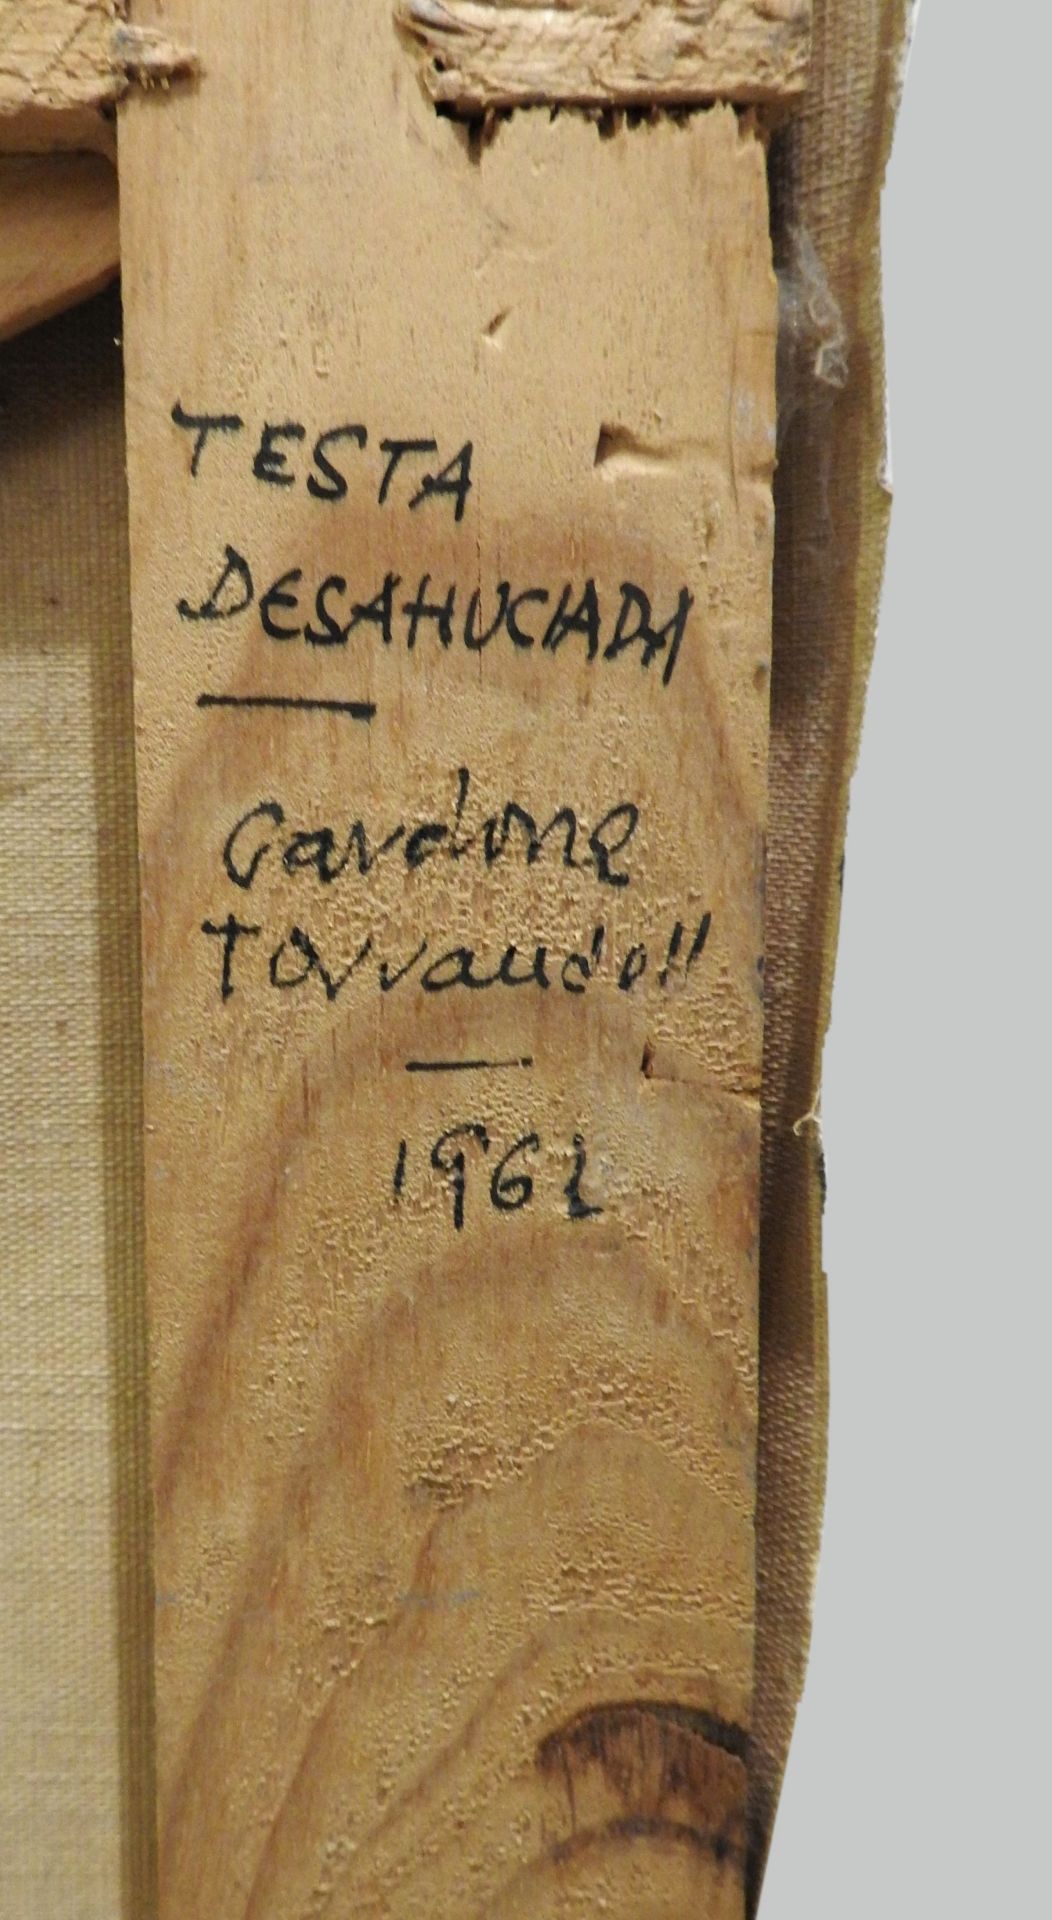 TESTA
DESAHUCIADA
Cardona
Torrandell
1961